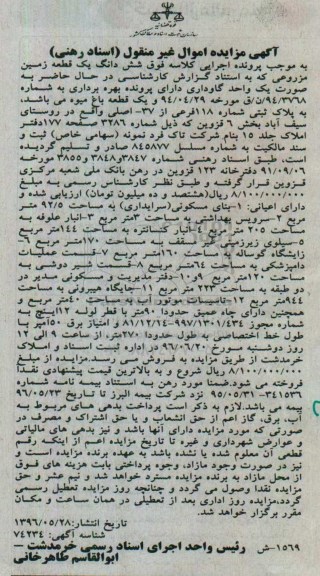 آگهی مزایده اموال غیر منقول (اسناد رهنی)
به موجب پرونده اجرایی کلاسه فوق شش دانگ یک قطعه زمین
مزروعی که به استناد گزارش کارشناسی در حال حاضر به
صورت یک واحد گاوداری دارای پرونده بهره برداری به شماره
۹۴،۳۷۶۸/ن/ق مورخه ۹۴/۰۴/۲۹ و یک قطعه باغ میوه می باشد،
به پلاک ثبتی شماره ۱۱۸فرعی از ۳۷-اصلی واقع در روستای
سیف آباد بخش ۶ قزوین که ذیل شماره ۳۲۸۰ صفحه ۱۷۷دفتر
املاک جلد ۱۵ بنام شرکت تاک فرد نمونه (سهامی خاص) ثبت و
سند مالکیت به شماره مسلسل ۸۴۵۸۷۷ صادر و تسلیم گردیده
است، طبق اسناد رهنی شماره ۳۸۴۷و۳۸۴۸ و۳۸۵۵ مورخه
۹۱/۰۹/۰۶ دفترخانه ۱۲۳ قزوین در رهن بانک ملی شعبه مرکزی
قزوین قرار گرفته و طبق نظر کارشناس رسمی به مبلغ
۸/۱۰۰/۰۰۰/۰۰۰ ریال(هشتصد و ده میلیون تومان) ارزیابی شده و
دارای اعیانی: ۱-بنای مسکونی(سرایداری) به مساحت ۹۲/۵ متر
مربع ۲-سرویس بهداشتی به مساحت ۳متر مربع ۳-انبار علوفه به
مساحت ۲۰۵ متر مربع ۴-انبار کنسانتره به مساحت ۱۴۴متر مربع
۵-سیلوی زیرزمینی بدون سقف به مساحت ۱۷۰متر مربع ۶-
زایشگاه گوساله به مساحت ۱۶۰متر مربع ۷-قسمت عملیات
دامپزشکی به مساحت ۶۴متر مربع ۸-قسمت شیر دوشی به
مساحت ۱۲۰متر مربع ۹و۱۰-دفتر مدیریت و مسکونی مدیر در
دو طبقه به مساحت ۲۲۳ متر مربع ۱۱-جایگاه هیبرونی به مساحت
۹۴۴متر مربع ۱۲-تاسیسات موتور آب به مساحت ۴۰متر مربع و
همچنین دارای چاه عمیق حدودا ۹۰متر با قطر لوله ۱۲اینچ به
شماره مجوز ۸۱/۱۲/۱۴-۹۹۷/۱۳۰۱/۴۳۴ و امتیاز برق ۵۰آمپر با
طول خط اختصاصی به طول حدودا ۲۷۰متر، از ساعت ۹ الی ۱۲
روز دوشنبه مورخ ۹۶/۰۶/۲۰ در اداره ثبت اسناد و املاک
خرمدشت از طریق مزایده به فروش می رسد.مزایده از مبلغ
۸/۱۰۰/۰۰۰/۰۰۰ ریال شروع و به بالاترین قیمت پیشنهادی نقداً
فروخته می شود.ضمنا مورد رهن به استناد بیمه نامه شماره
۳۴۱۵۳۶- ۹۵/۰۵/۳۱ نزد شرکت بیمه البرز تا تاریخ ۹۶/۰۵/۲۳
بیمه می باشد.لازم به ذکر است پرداخت بدهی های مربوط به
آب، برق، گاز اعم از حق انشعاب و یا حق اشتراک و مصرف در
صورتی که مورد مزایده دارای آنها باشد و نیز بدهی های مالیاتی
و عوارض شهرداری و غیره تا تاریخ مزایده اعم از اینکه رقم
قطعی آن معلوم شده یا نشده باشد به عهده برنده مزایده است و
نیز در صورت وجود مازاد، وجوه پرداختی بابت هزینه های فوق
از محل مازاد به برنده مزایده مسترد خواهد شد و نیم عشر و حق
مزایده نقدا وصول می گردد و چنانچه روز مزایده تعطیل رسمی
گردد،مزایده روز اداری بعد از تعطیلی در همان ساعت و مکان
مقرر برگزار خواهد شد.
تاریخ انتشار:۱۳۹۶/۰۵/۲۸
شناسه آگهی: ۷۴۲۳۴
۱۵۶۹-ش رئیس واحد اجرای اسناد رسمی خرمدشت –
ابوالقاسم طاهرخانی